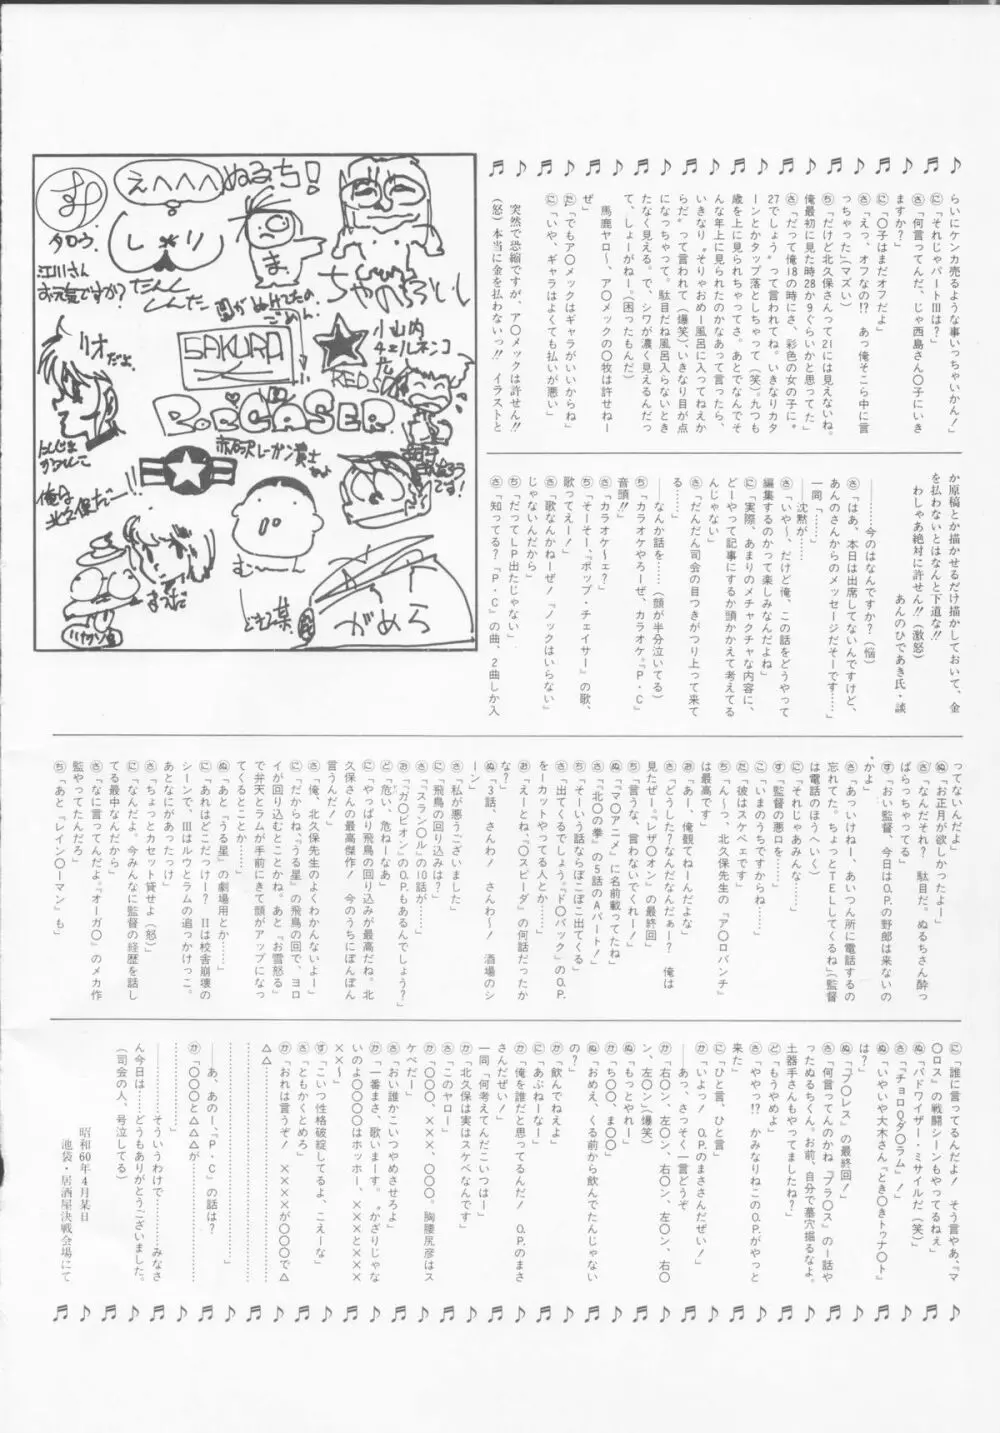 らいにケンカ売るような事いっちゃいかん!」
㋥「それじゃパートⅢは?」
㋚「何言ってんだ、じゃ西島さん〇子にいき
ますか?」
㋥「〇子はまだオフだよ」
㋚「えっ、オフなの!? あっ俺そこら中に言
っちゃった」(マズい)
㋠「だけど北久保さんって21には見えないね。
俺最初に見た時28か9くらいかと思ってた」
㋚「だって俺18の時にさ、彩色の女の子に。
27でしょう〟って言われてね。いきなりカタ
ーンとかタップ落としちゃって(笑)。九つも
歳を上に見られちゃってさ。あとでなんでそ
んな年上に見られたのかなあって言ったら、
いきなり〝そりゃおめー風呂に入ってねえか
らだ〟って言われて(爆笑)、いきなり目が点
になっちゃって。駄目だね風呂入らないとき
たなく見える。で、シワが濃く見えるんだっ
て、しょーがねー。(困ったもんだ)
馬鹿ヤロ〜、ア〇メックの〇牧は許せねー
ぜ」
㋟「でもア〇メックはギャラがいいからね」
㋥「いや、ギャラはよくても払いが悪い」
突然で恐縮ですが、ア〇メックは許せん!!
(怒)本当に金を払わないっ!! イラストと
か原稿とか描かせるだけ描かしておいて、金
を払わないとはなんと下道な!!
わしゃあ絶対に許せん!!(激怒)
あんのひであき氏・談
————今のはなんですか?(悩)
㋚「はあ、本日は出席してないんですけど、
あんのさんからのメッセージだそーです……」
一同「……」
————沈黙が……
㋚「いや〜、だけど俺、この話をどうやって
編集するのかって楽しみなんだよね」
㋥「実際、あまりのメチャクチャな内容に、
どーやって記事にするか頭かかえて考えてる
んじゃない」
㋚「だんだん司会の目つきがつり上って来て
る……」
————なんか話を……(顔が半分泣いてる)
㋠「カラオケやろーぜ、カラオケ。『P・C』
音頭!!」
㋚「カラオケ〜ェ?」
㋠「そーそー、『ポップ・チェイサー』の歌、
歌ってえー!」
㋚「歌なんかねーぜ!『ノックはいらない』
じゃないんだから」
㋠「だってLP出たじゃない」
㋚「知ってる?『P・C』の曲、2曲しか入
ってないんだよ」
㋦「お正月が欲しかったよー」
㋚「なんだそれ? 駄目だ。ぬるちさん酔っ
ぱらっちゃってる」
㋜「おい監督、今日はO.P.の野郎は来ないの
かよ」
㋚「あっいけねー、あいつん所に電話するの
忘れてた。ちょっとTELしてくるね」(監督
は電話のほうへいく)
㋥「それじゃあみんな……」
㋜「監督の悪口を……」
㋙「いまのうちですからね……」
㋟「彼はスケベェです」
㋠「ん〜っ、北久保先生の『ア〇ロバンチ』
は最高です」
㋔「あー、俺観てねーんだよな」
㋚「どうした?なんだなんだぁー? 俺は
見たぜー。『レザ〇オン』の最終回」
㋠「言うな、言わないでくれー!」
㋦「『マ〇アニメ』に名前載ってたね」
㋚「『北〇の拳』の5話のAパート!」
㋠「そーいう話ならぼこぼこ出てくる」
㋚「出てくるでしょう。『ド〇バック』のO.P.
をーカットやってる人とか……」
㋔「えーとね、『〇スピーダ』の何話だったか
な?」
㋦「3話、さんわ! さんわ〜! 酒場のシ
ーン」
㋚「私が悪うございました」
㋥「飛鳥の回り込みは?」
㋚「『スラン〇ル』の10話が……」
㋔「『ガ〇ビオン』のO.P.もあるんでしょう?」
㋣「危い、危ねーなあ」
㋥「やっぱり飛鳥の回り込みが最高だね。北
久保さんの最高傑作! 今のうちにぽんぽん
言うんだ」
㋚「俺、北久保先生のよくわかんないよー」
㋥「だからね、『うる星』の飛鳥の回で、ヨロ
イが回り込むとことかね。あと『お雪怒る』
で弁天とラムが手前にきて顔がアップになっ
てくるとことか……」
㋦「あと『うる星』の劇場用とか……」
㋥「あれはどこだっけー? Ⅱは校舎崩壊の
シーンで、Ⅲはルウとラムの追っかけっこ。
あとなにがあったっけ」
㋚「ちょっとカセット貸せよ(怒)」
㋥「なんだよ。今みんなに監督の経歴を話し
てる最中なんだから」
㋚「なに言ってんだよ。『オーガ〇』のメカ作
監やってたんだろ」
㋠「あと『レイン〇ーマン』も」
㋥「誰に言ってるんだよ! そう言やあ、『マ
〇ロス』の戦闘シーンもやってるねえ」
㋦「バドワイザー・ミサイルだ(笑)」
㋚「『チョロQダ〇ラム』!」
㋦「いやいや大木さん『とき〇きトゥナ〇ト』
は?」
㋦「『プ〇レス』の最終回!」
㋚「何言ってんのかね『プラ〇ス』の一話や
ったぬるちくん。お前、自分で墓穴掘るなよ。
土器手さんもやってましたね?」
㋣「もうやめよ」
㋚「ややっ!? かみなりねこのO.P.がやっと
来た」
㋥「ひと言、ひと言」
㋕「いよっ! O.P.のまささんだぜい!」
————あっ、さっそく一言どうぞ
㋕「右〇ン、左〇ン、右〇ン、左〇ン、右〇
ン、左〇ン」(爆笑)
㋦「もっとやれー」
㋕「ち〇〇、ま〇〇」
㋦「おめえ、くる前から飲んでたんじゃない
の?」
㋕「飲んでねえよ」
㋥「あぶねーなー」
㋕「俺を誰だと思ってるんだ! O.P.のまさ
さんだぜい!」
一同「何考えてんだこいつはー」
㋕「北久保は実はスケベなんです」
㋚「このヤロー」
㋕「〇〇〇、×××、〇〇〇。胸腰尻彦はス
ケベだー」
㋚「おい誰かこいつやめさせろよ」
㋕「一番まさ、歌いまーす。〝かざりじゃな
いのよ〇〇〇〇はホッホー、×××と×××
××〜」
㋜「こいつ性格破綻してるよ、こえーな」
㋚「ともかくとめろ」
㋕「おれは言うぞ! ××××が〇〇〇で△
△△……………………
……………………
————あ、あのー、『P・C』の話は?
㋕「〇〇〇と△△△が……………………
…………」
————そういうわけで……………みなさ
ん今日は……どうもありがとうございました。
(司会の人、号泣してる)
昭和60年4月某日
池袋・居酒屋決戦会場にて
す
タロウ.
えへへへ
ぬるち!
しり
江川さん
お元気ですか?
ま
ごめん.
SAKURA
RED S
小山内
リオだよ.
P.CASER
俺は
北久保だー!!
です!
む〜〜ん
がめら